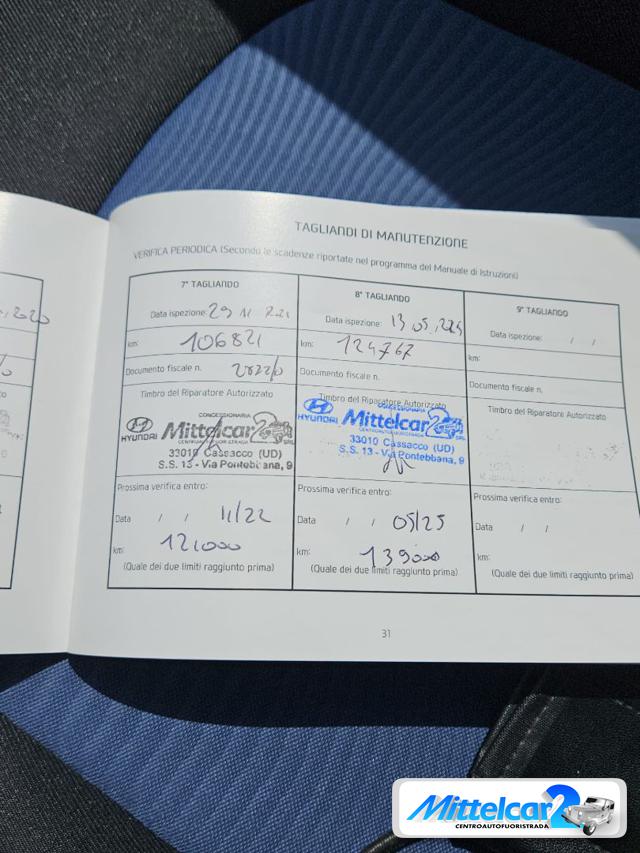 TAGLIANDI DI MANUTENZIONE
VERIFICA PERIODICA (Secondo le scadenze riportate nel programma del Manuale di Istruzioni)
7° TAGLIANDO
Data ispezione: 29 11 2021
km: 106821
Documento fiscale n.
Timbro del Riparatore Autorizzato
CONCESSIONARIA
HYUNDAI Mittelcar2 SRL
CENTROAUTOFUORISTRADA
33010 Cassacco (UD)
S.S. 13 - Via Pontebbana, 9
Prossima verifica entro:
Data / / 11/22
km: 121000
(Quale dei due limiti raggiunto prima)
8° TAGLIANDO
Data ispezione: 13 05, 2024
km: 124767
Documento fiscale n.
Timbro del Riparatore Autorizzato
CONCESSIONARIA
HYUNDAI Mittelcar2 SRL
CENTROAUTOFUORISTRADA
33010 Cassacco (UD)
S.S. 13 - Via Pontebbana, 9
Prossima verifica entro:
Data / / 05/25
km: 139000
(Quale dei due limiti raggiunto prima)
9° TAGLIANDO
Data ispezione: / /
km:
Documento fiscale n.
Timbro del Riparatore Autorizzato
Prossima verifica entro:
Data / /
km:
(Quale dei due limiti raggiunto prima)
31
Mittelcar2
CENTROAUTOFUORISTRADA